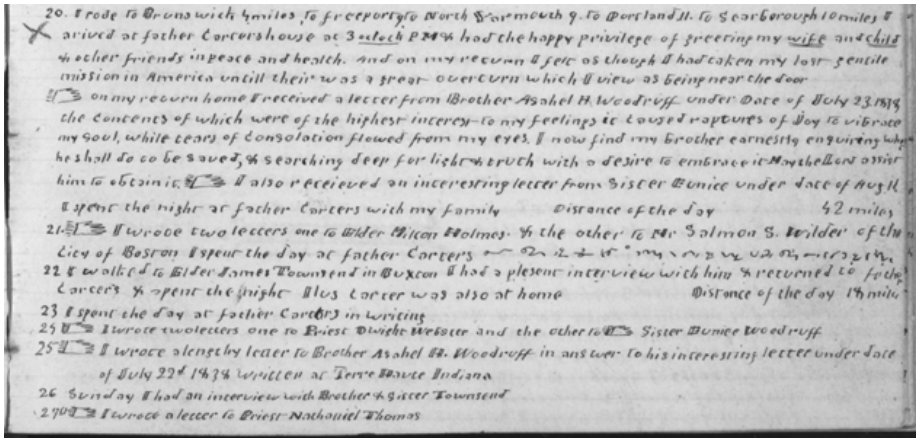 20. I rode to Brunswick 4 miles, to freeport 9 to North Yarmouth 9. to Portland 11. to Scarborough 10 miles I
arived at father Carters house at 3 oclock P.M & had the happy privilege of greeting my wife and child
& other friends in peace and health. And on my return I felt as though I had taken my last gentile
mission in America untill their was a great overturn which I view as being near the door
on my return home I received a letter from Brother Asahel H. Woodruff under Date of July 23. 1838
the contents of which were of the highest interest to my feelings it caused raptures of Joy to vibrate
my soul, while tears of consolation flowed from my eyes. I now find my brother earnestly enquiring what
he shall do to be saved, & searching deep for light & truth with a desire to embrace it May the Lord assist
him to obtain it. I also receieved an interesting letter from Sister Eunice under date of Aug 11
I spent the night at father Carters with my family Distance of the day 42 miles
21. I wrote two letters one to Elder Milton Holmes. & the other to Mr Salmon S. Wilder of the
City of Boston I spent the day at father Carters
22 I walked to Elder James Townsend in Buxton I had a plesent interview with him & returned to fathe
Carters & spent the night Ilus Carter was also at home Distance of the day 18 miles
23 I spent the day at father Carters in writing
24 I wrote two letters one to Priest Dwight Webster and the other to Sister Eunice Woodruff
25 I wrote a lengthy letter to Brother Asahel H. Woodruff in answer to his interesting letter under date
of July 22d 1838 written at Terre Haute Indiana
26 Sunday I had an interview with Brother & Sister Townsend
27th I wrote a letter to Priest Nathaniel Thomas